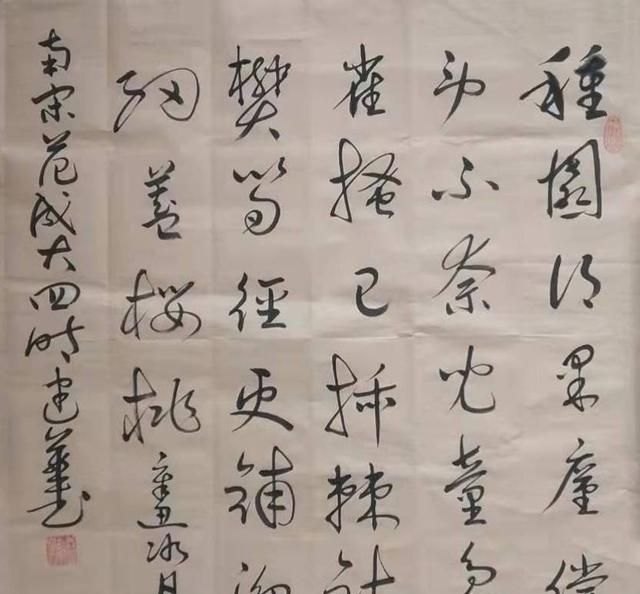 種園得果廑償
劳不奈兒童鳥
雀搔已插棘針
樊筍徑更鋪漁
網蓋樱桃辛丑冰月
南宋范成大四時建華书